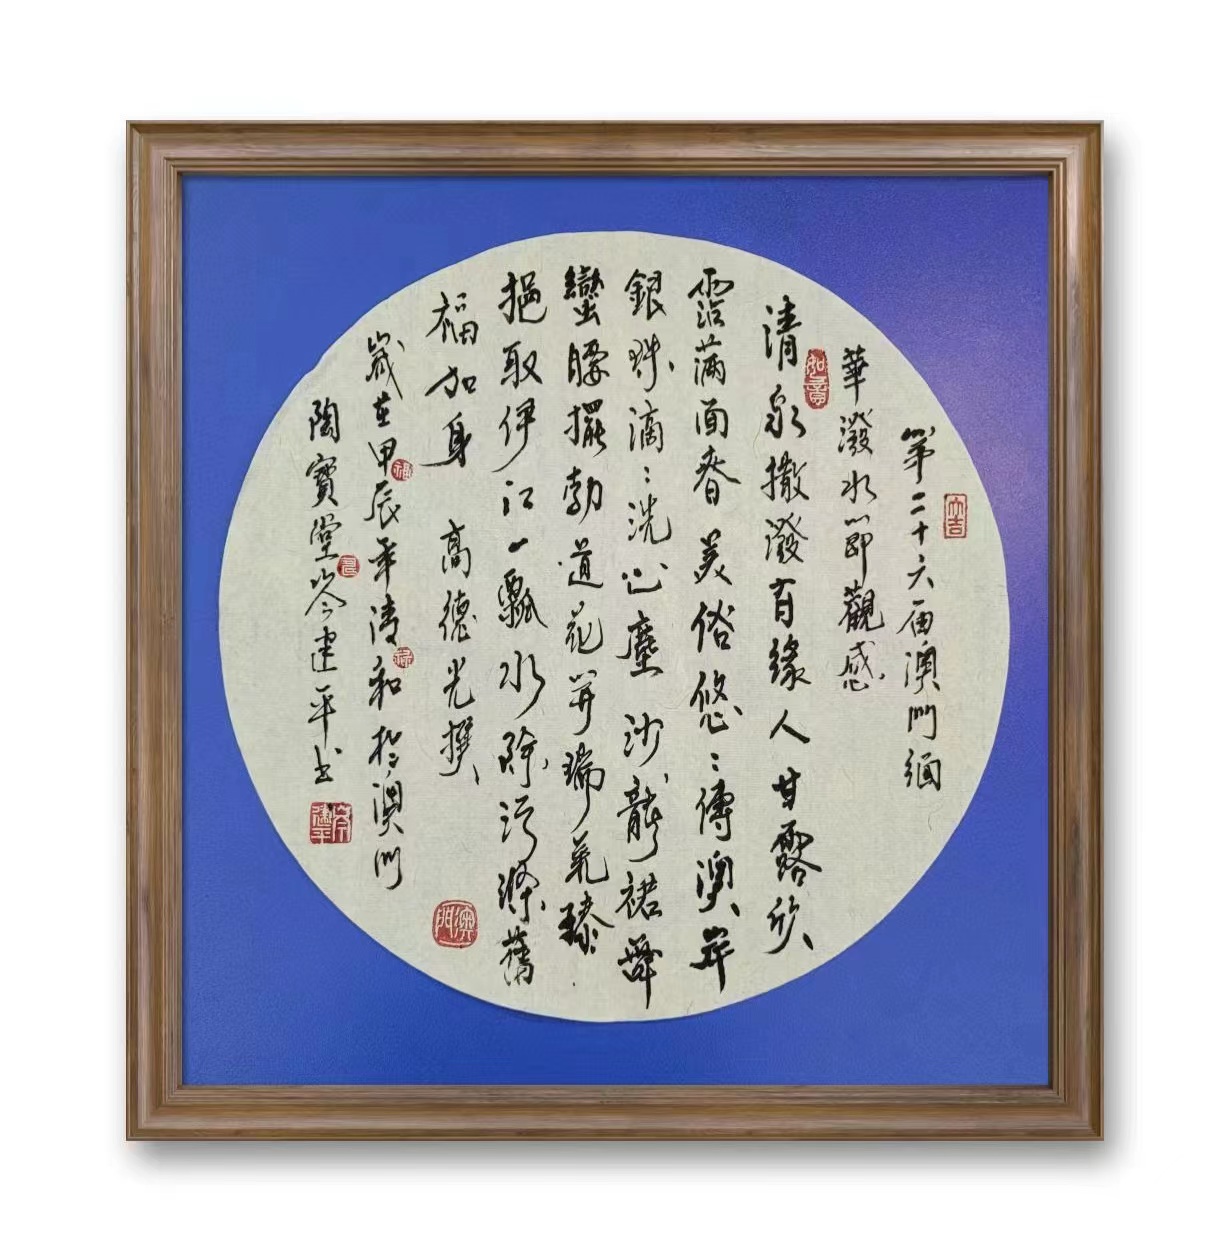 第二十六届澳門緬
華潑水節觀感
清泉撒潑有緣人甘露欣
霑滿面春美俗悠〻傳澳岸
銀珠滴〻洗心塵沙龍裙舞
蠻腰擺勃道花開瑞氣臻
挹取伊江一瓢水除污滌舊
福加身 高德光撰
歲在甲辰年清和於澳門
陶寶堂岑建平书
大吉
如意
福
澳門